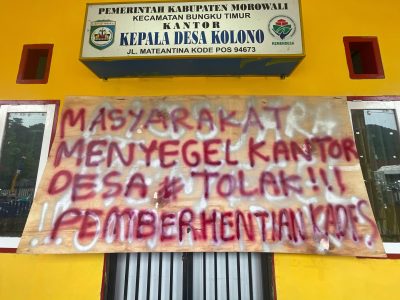 PEMERINTAH KABUPATEN MOROWALI
KECAMATAN BUNGKU TIMUR
KANTOR
KEPALA DESA KOLONO
JL. MATEANTINA KODE POS 94673
KEMENDESA
MASYARAKAT
MENYEGEL KANTOR
DESA # TOLAK!!!
!! PEMBERHENTIAN KADES